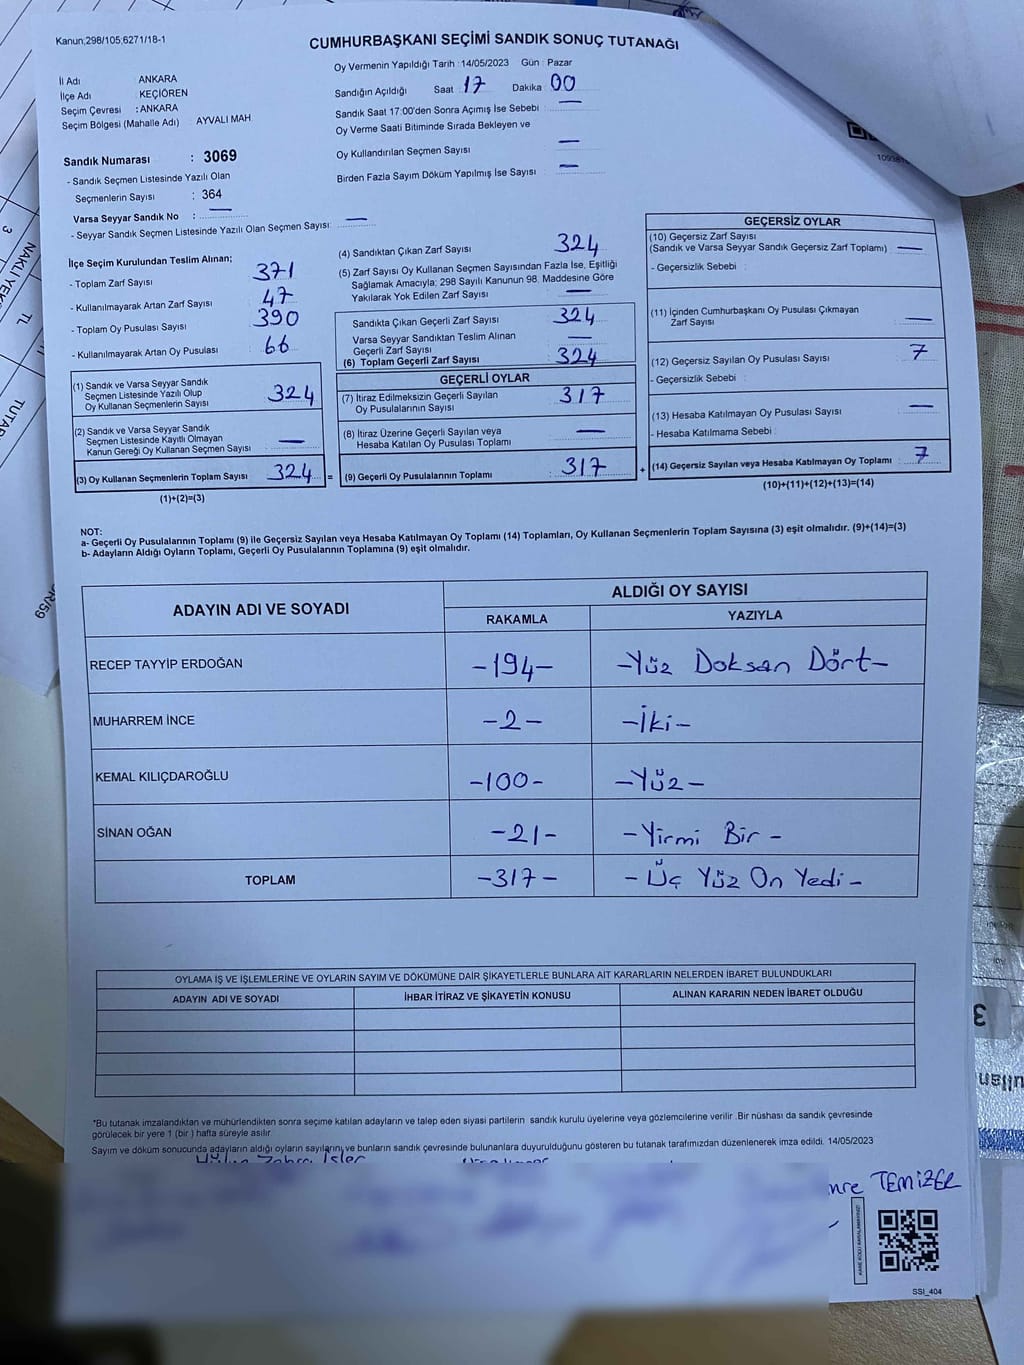 Kanun;298/105;6271/18-1
CUMHURBAŞKANI SEÇİMİ SANDIK SONUÇ TUTANAĞI
Oy Vermenin Yapıldığı Tarih : 14/05/2023 Gün : Pazar
İl Adı ANKARA
İlçe Adı : KEÇİÖREN
Seçim Çevresi : ANKARA
Seçim Bölgesi (Mahalle Adı) : AYVALI MAH
Sandığın Açıldığı Saat : 17 Dakika 00
Sandık Saat 17:00'den Sonra Açımış İse Sebebi : —
Oy Verme Saati Bitiminde Sırada Bekleyen ve
Oy Kullandırılan Seçmen Sayısı —
Birden Fazla Sayım Döküm Yapılmış İse Sayısı —
Sandık Numarası : 3069
- Sandık Seçmen Listesinde Yazılı Olan
Seçmenlerin Sayısı : 364
Varsa Seyyar Sandık No : —
- Seyyar Sandık Seçmen Listesinde Yazılı Olan Seçmen Sayısı: —
İlçe Seçim Kurulundan Teslim Alınan;
- Toplam Zarf Sayısı 371
- Kullanılmayarak Artan Zarf Sayısı 47
- Toplam Oy Pusulası Sayısı 390
- Kullanılmayarak Artan Oy Pusulası 66
(1) Sandık ve Varsa Seyyar Sandık
Seçmen Listesinde Yazılı Olup
Oy Kullanan Seçmenlerin Sayısı 324
(2) Sandık ve Varsa Seyyar Sandık
Seçmen Listesinde Kayıtlı Olmayan
Kanun Gereği Oy Kullanan Seçmen Sayısı —
(3) Oy Kullanan Seçmenlerin Toplam Sayısı 324 =
(1)+(2)=(3)
(4) Sandıktan Çıkan Zarf Sayısı 324
(5) Zarf Sayısı Oy Kullanan Seçmen Sayısından Fazla İse, Eşitliği
Sağlamak Amacıyla; 298 Sayılı Kanunun 98. Maddesine Göre
Yakılarak Yok Edilen Zarf Sayısı —
Sandıkta Çıkan Geçerli Zarf Sayısı 324
Varsa Seyyar Sandıktan Teslim Alınan
Geçerli Zarf Sayısı —
(6) Toplam Geçerli Zarf Sayısı 324
GEÇERLİ OYLAR
(7) İtiraz Edilmeksizin Geçerli Sayılan
Oy Pusulalarının Sayısı 317
(8) İtiraz Üzerine Geçerli Sayılan veya
Hesaba Katılan Oy Pusulası Toplamı —
(9) Geçerli Oy Pusulalarının Toplamı 317 +
GEÇERSİZ OYLAR
(10) Geçersiz Zarf Sayısı
(Sandık ve Varsa Seyyar Sandık Geçersiz Zarf Toplamı) —
- Geçersizlik Sebebi :
(11) İçinden Cumhurbaşkanı Oy Pusulası Çıkmayan
Zarf Sayısı —
(12) Geçersiz Sayılan Oy Pusulası Sayısı 7
- Geçersizlik Sebebi :
(13) Hesaba Katılmayan Oy Pusulası Sayısı —
- Hesaba Katılmama Sebebi :
(14) Geçersiz Sayılan veya Hesaba Katılmayan Oy Toplamı : 7
(10)+(11)+(12)+(13)=(14)
NOT:
a- Geçerli Oy Pusulalarının Toplamı (9) ile Geçersiz Sayılan veya Hesaba Katılmayan Oy Toplamı (14) Toplamları, Oy Kullanan Seçmenlerin Toplam Sayısına (3) eşit olmalıdır. (9)+(14)=(3)
b- Adayların Aldığı Oyların Toplamı, Geçerli Oy Pusulalarının Toplamına (9) eşit olmalıdır.
ADAYIN ADI VE SOYADI ALDIĞI OY SAYISI
RAKAMLA YAZIYLA
RECEP TAYYİP ERDOĞAN -194- -Yüz Doksan Dört-
MUHARREM İNCE -2- -İki-
KEMAL KILIÇDAROĞLU -100- -Yüz-
SİNAN OĞAN -21- -Yirmi Bir-
TOPLAM -317- -Üç Yüz On Yedi-
OYLAMA İŞ VE İŞLEMLERİNE VE OYLARIN SAYIM VE DÖKÜMÜNE DAİR ŞİKAYETLERLE BUNLARA AİT KARARLARIN NELERDEN İBARET BULUNDUKLARI
ADAYIN ADI VE SOYADI İHBAR İTİRAZ VE ŞİKAYETİN KONUSU ALINAN KARARIN NEDEN İBARET OLDUĞU
*Bu tutanak imzalandıktan ve mühürlendikten sonra seçime katılan adayların ve talep eden siyasi partilerin sandık kurulu üyelerine veya gözlemcilerine verilir .Bir nüshası da sandık çevresinde
görülecek bir yere 1 (bir ) hafta süreyle asılır
Sayım ve döküm sonucunda adayların aldığı oyların sayılarını ve bunların sandık çevresinde bulunanlara duyurulduğunu gösteren bu tutanak tarafımızdan düzenlenerek imza edildi. 14/05/2023
TEMİZER
SSI_404